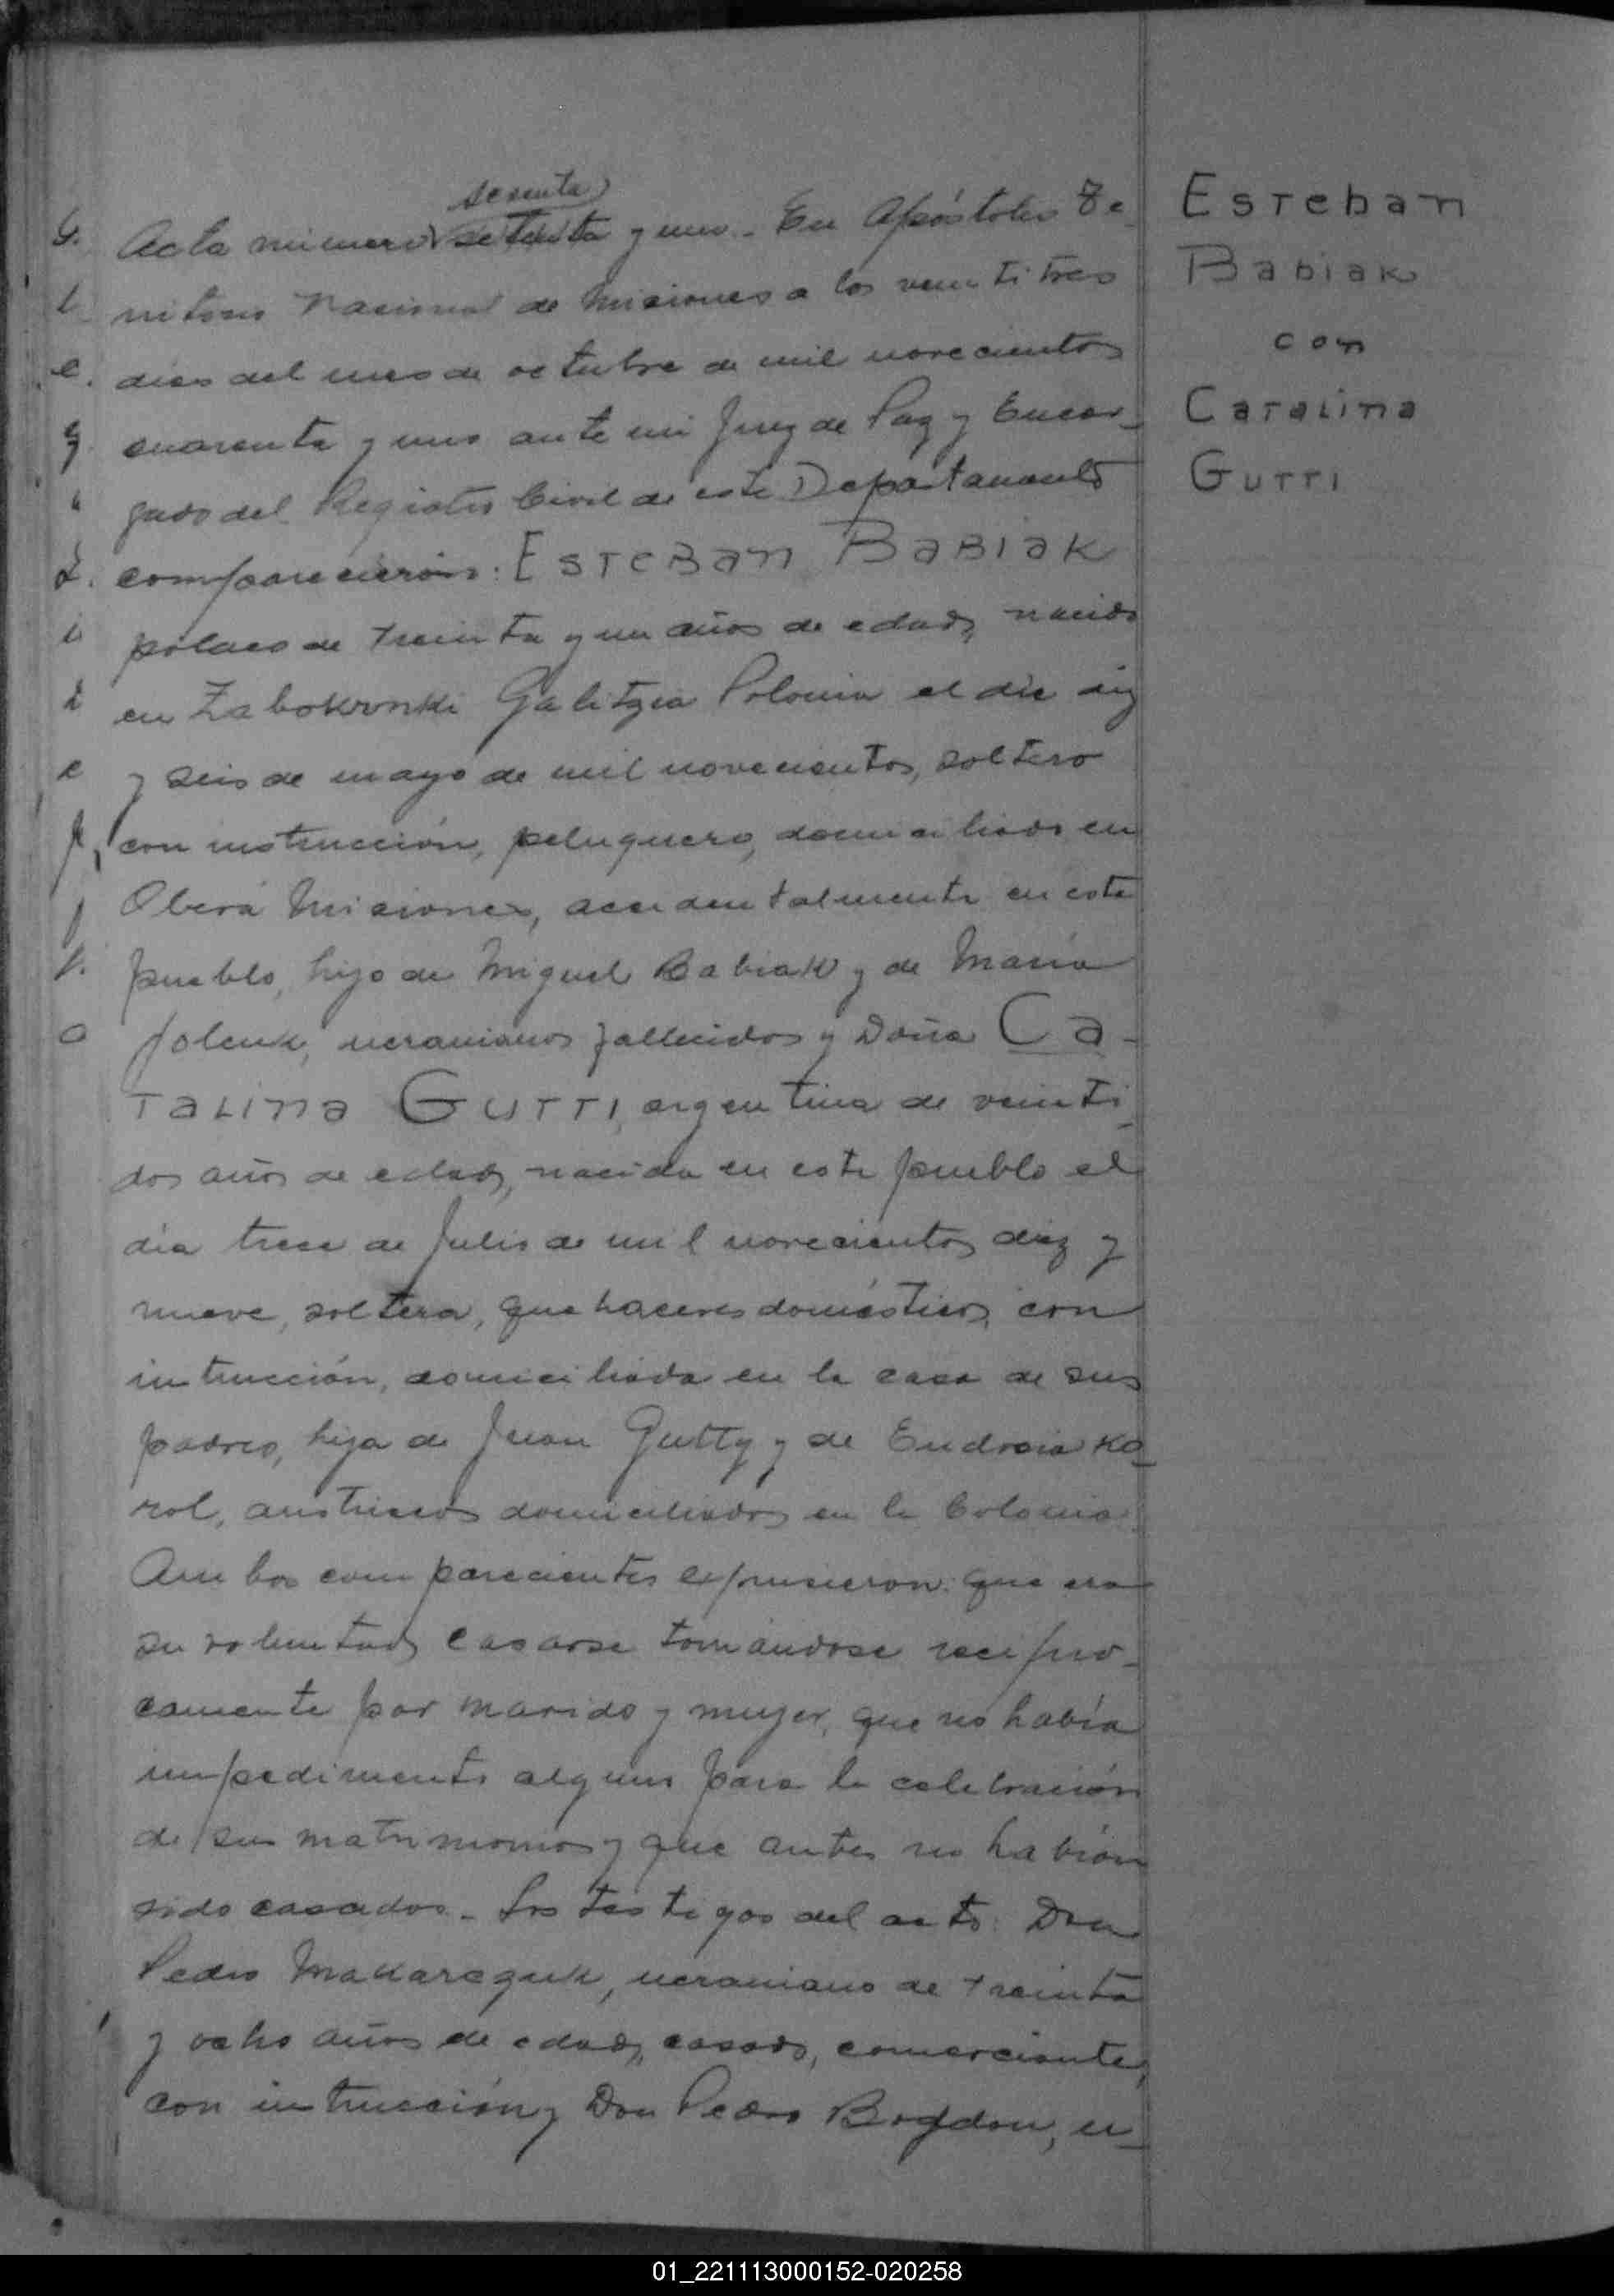 Esteban
Babiak
con
Catalina
Gutti
sesenta
Acta número setenta y uno. En Apóstoles Te-
rritorio Nacional de Misiones a los veintitres
dias del mes de octubre de mil novecientos
cuarenta y uno ante mi Juez de Paz y Encar-
gado del Registro Civil de este Departamento
comparecieron: Esteban Babiak
polaco de treinta y un años de edad, nacido
en Zabokronki Galitzia Polonia el dia diez
y seis de mayo de mil novecientos, soltero
con instrucción, peluquero, domiciliado en
Oberá Misiones, accidentalmente en este
pueblo, hijo de Miguel Babiak y de María
ucranianos fallecidos y Doña Ca-
talina Gutti, argentina de veinti
dos años de edad, nacida en este pueblo el
día trece de Julio de mil novecientos diez y
nueve, soltera, quehaceres domésticos, con
intrucción, domiciliada en la casa de sus
padres, hija de Juan Gutty y de Eudocia Ko-
rol, austriacos domiciliados en la Colonia.
Ambos comparecientes expusieron: que era
su voluntad casarse tomándose recipro-
camente por marido y mujer, que no había
impedimento alguno para la celebración
de su matrimonio y que antes no habían
sido casados. Los testigos del acto: Don
Pedro Makarczuk, ucraniano de treinta
y ocho años de edad, casado, comerciante,
con intrucción y Don Pedro Bogdan, u-
01_221113000152-020258